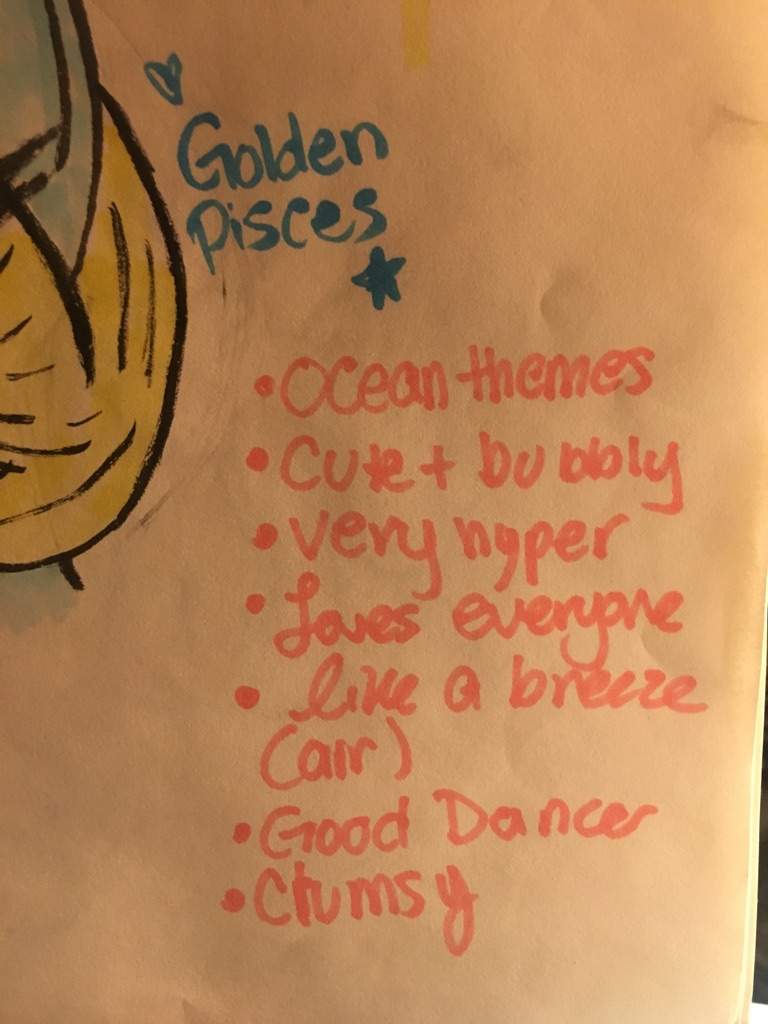 Golden
Pisces
• Ocean themes
• Cute + bubbly
• very hyper
• Loves everyone
• like a breeze
(air)
• Good Dancer
• Clumsy